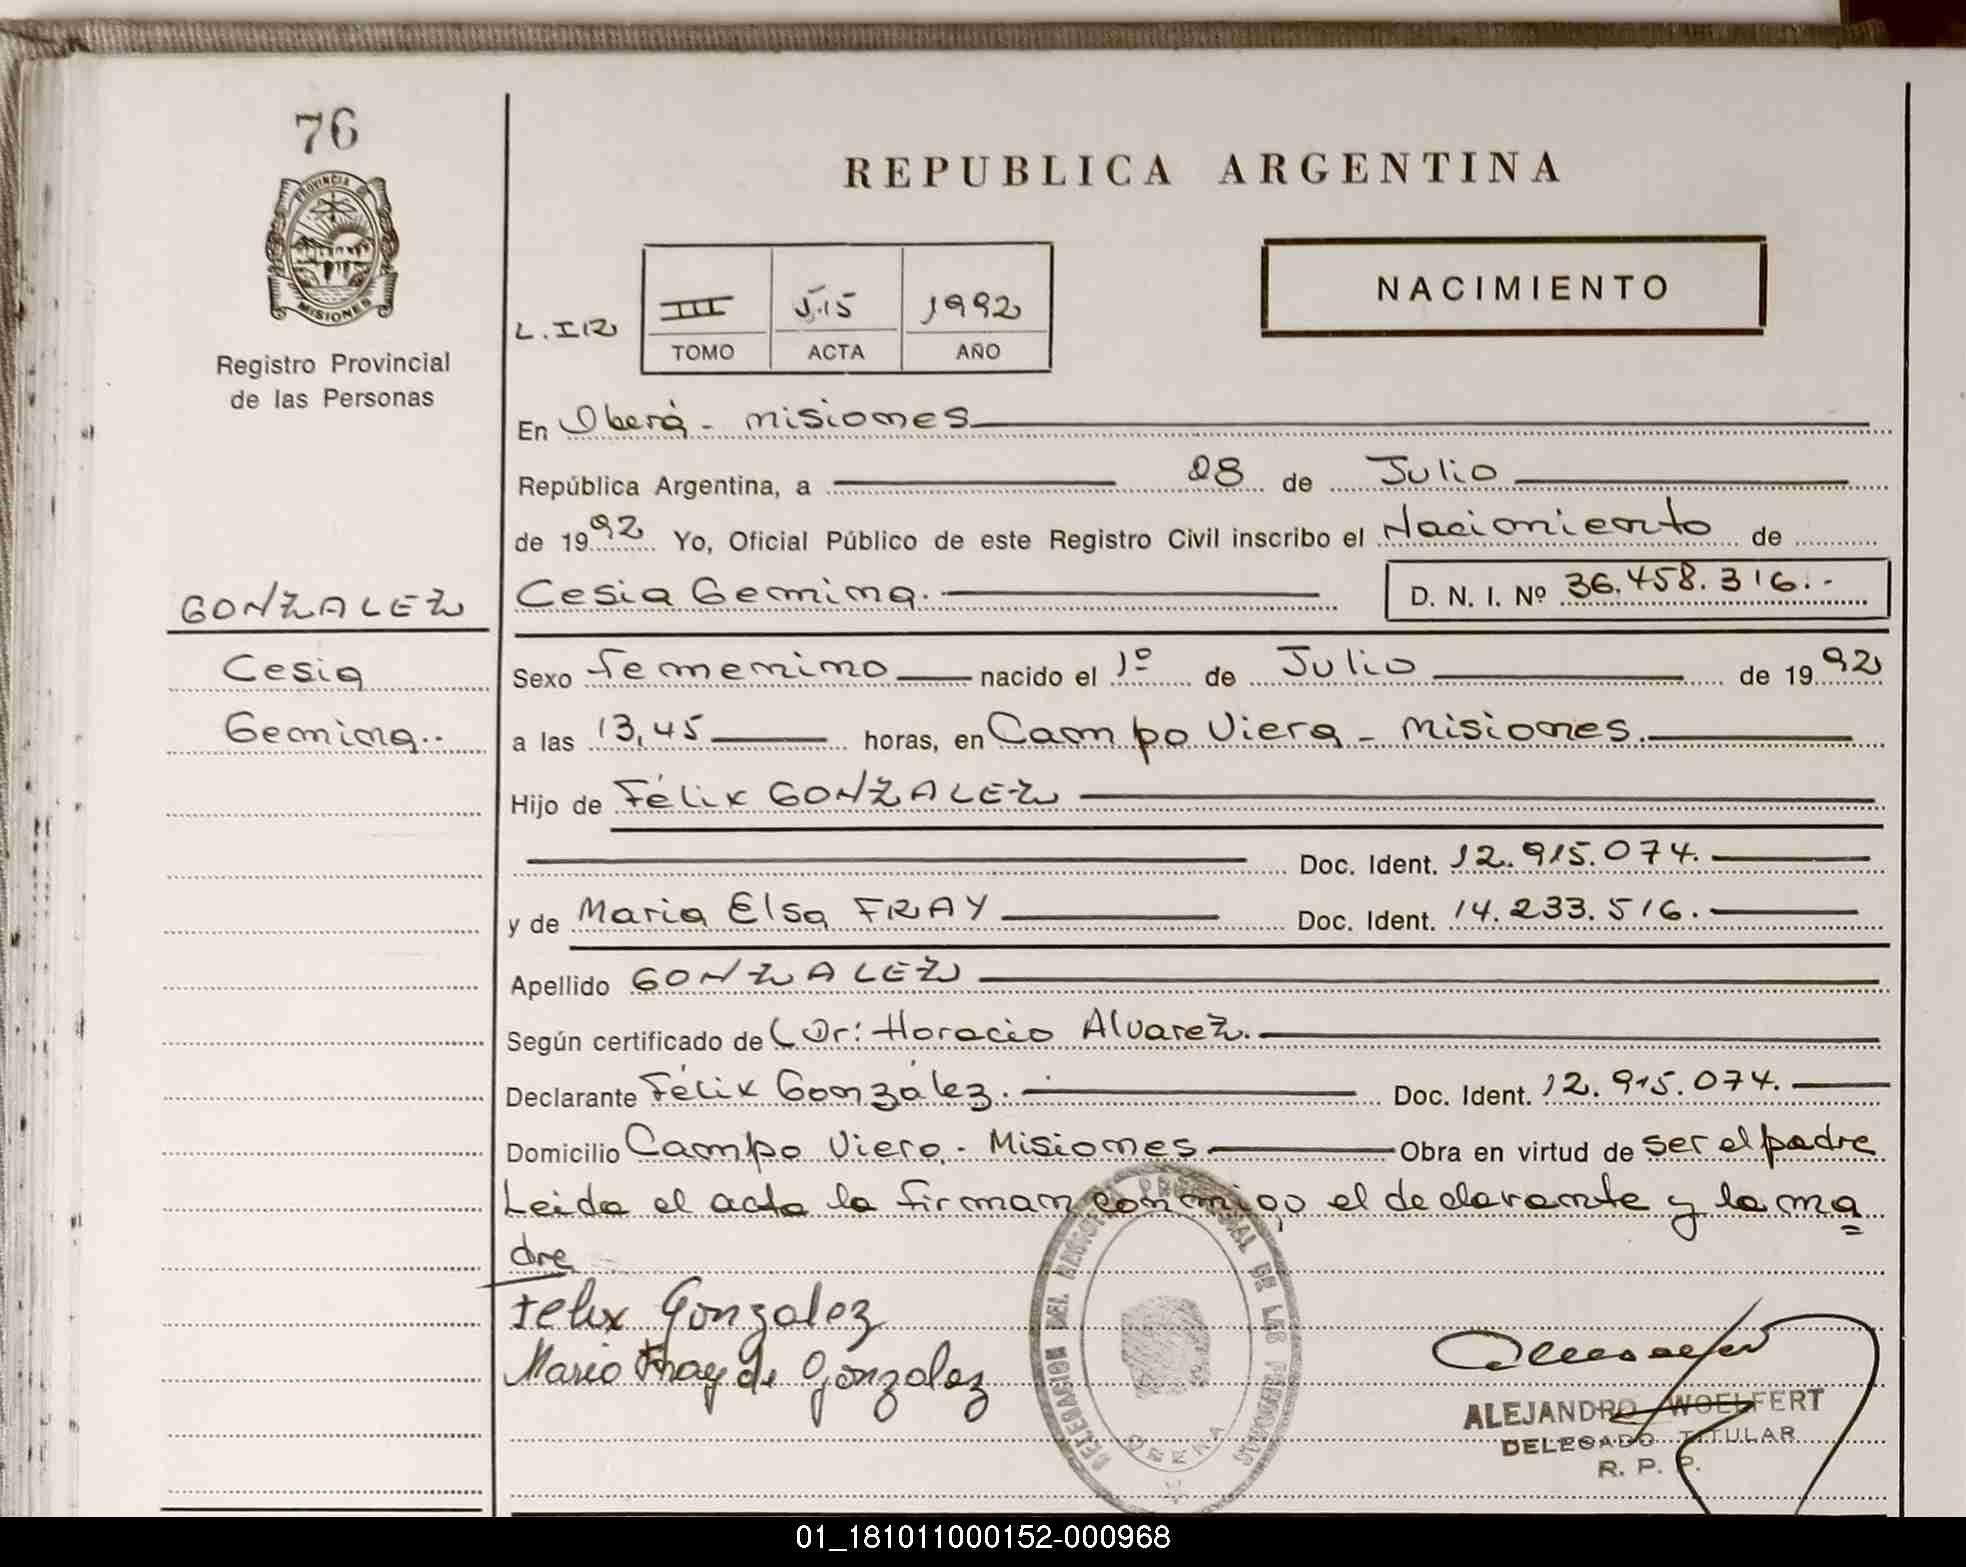 76
PROVINCIA
MISIONES
Registro Provincial
de las Personas
REPUBLICA ARGENTINA
NACIMIENTO
III 515 1992
TOMO ACTA AÑO
En Oberá - Misiones
República Argentina, a 28 de Julio
de 1992 Yo, Oficial Público de este Registro Civil inscribo el Nacimiento de
GONZALEZ
Cesia Gemima. D. N. I. Nº 36.458.316.-
Cesia
Gemima..
Sexo femenino nacido el 1º de Julio de 1992
a las 13,45 horas, en Campo Viera - Misiones.
Hijo de Félix GONZALEZ
Doc. Ident. 12.915.074.
y de Maria Elsa FRAY Doc. Ident. 14.233.516.
Apellido GONZALEZ
Según certificado de Dr: Horacio Alvarez.
Declarante Félix González. Doc. Ident. 12.915.074.
Domicilio Campo Viera - Misiones Obra en virtud de ser el padre
Leida el acta la firman conmigo el declarante y la ma
dre
Felix Gonzalez
Maria Fray de Gonzalez
DELEGACION DEL REGISTRO PROVINCIAL DE LAS PERSONAS
OBERA
ALEJANDRO WOELFERT
DELEGADO TITULAR
R. P. P.
01_181011000152-000968